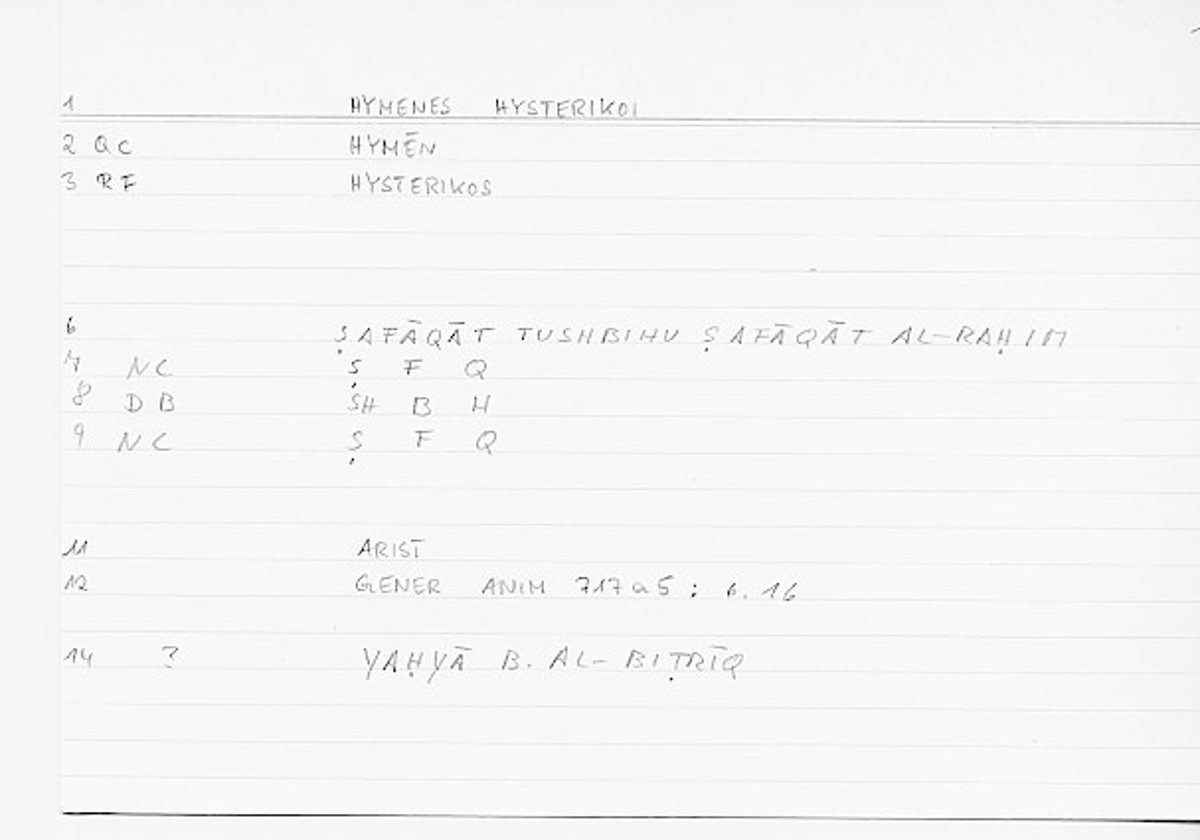 1 HYMENES HYSTERIKOI
2 QC HYMĒN
3 RF HYSTERIKOS
6 ṢAFĀQĀT TUSHBIHU ṢAFĀQĀT AL-RAḤIM
7 NC Ṣ F Q
8 DB SH B H
9 NC Ṣ F Q
11 ARIST
12 GENER ANIM 717a5 ; 6. 16
14 ? YAḤYĀ B. AL-BIṬRĪQ